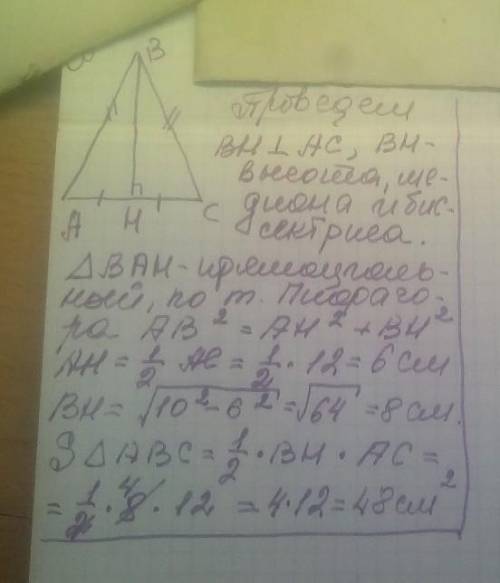 B
A
H
C
Проведем
BH ⊥ AC, BH-
высота, ме-
диана и бис-
сектриса.
△BAH - прямоуголь-
ный, по т. Пифаго-
ра AB² = AH² + BH²
AH = 1/2 AC = 1/2 · 12 = 6 см
BH = √(10² - 6²) = √64 = 8 см.
S △ABC = 1/2 · BH · AC =
= 1/2 · 8 4 · 12 = 4 · 12 = 48 см²